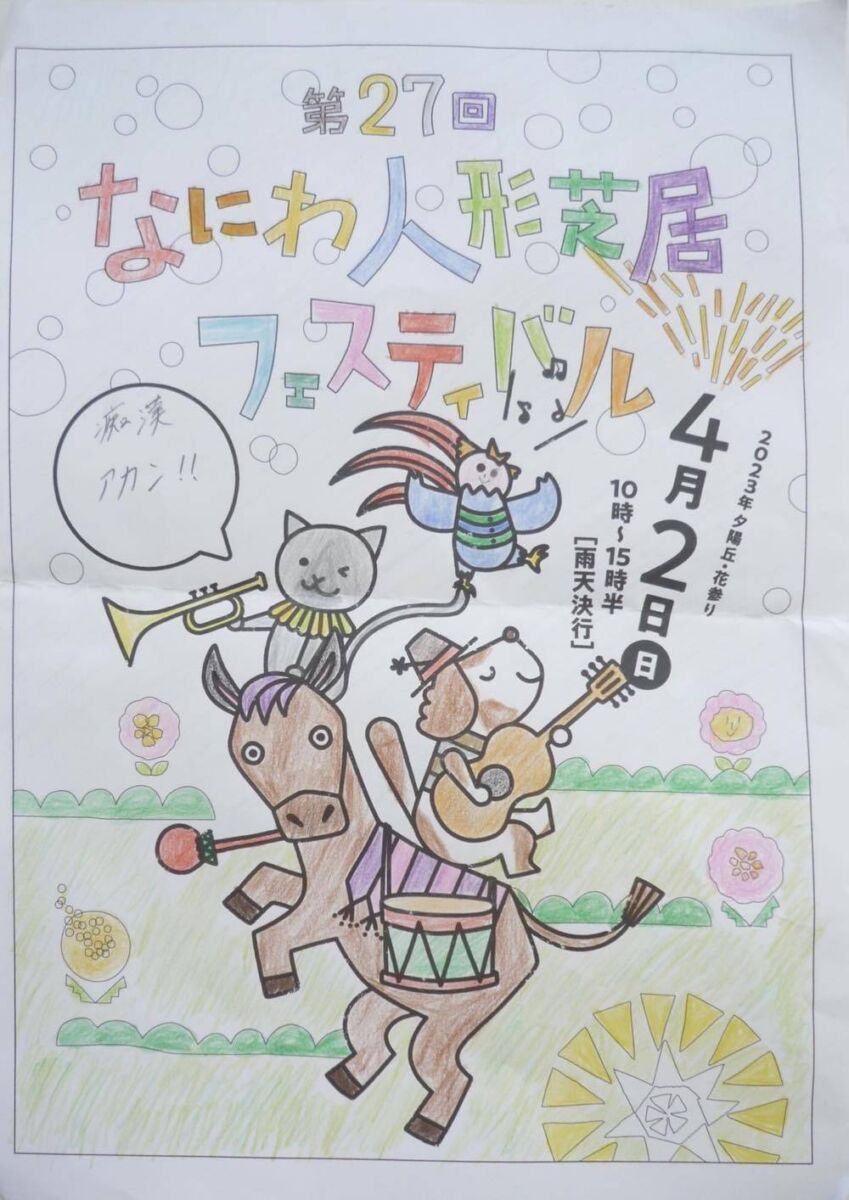 第27回
なにわ人形芝居
フェスティバル
痴漢
アカン!!
2023年 夕陽丘・花参り
4月2日日
10時〜15時半
[雨天決行]